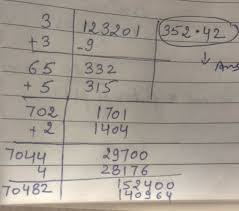 3 123201 352.42
+3 -9 ↓ Ans
65 332
+5 315
702 1701
+2 1404
7044 29700
4 28176
70482 152400
140964